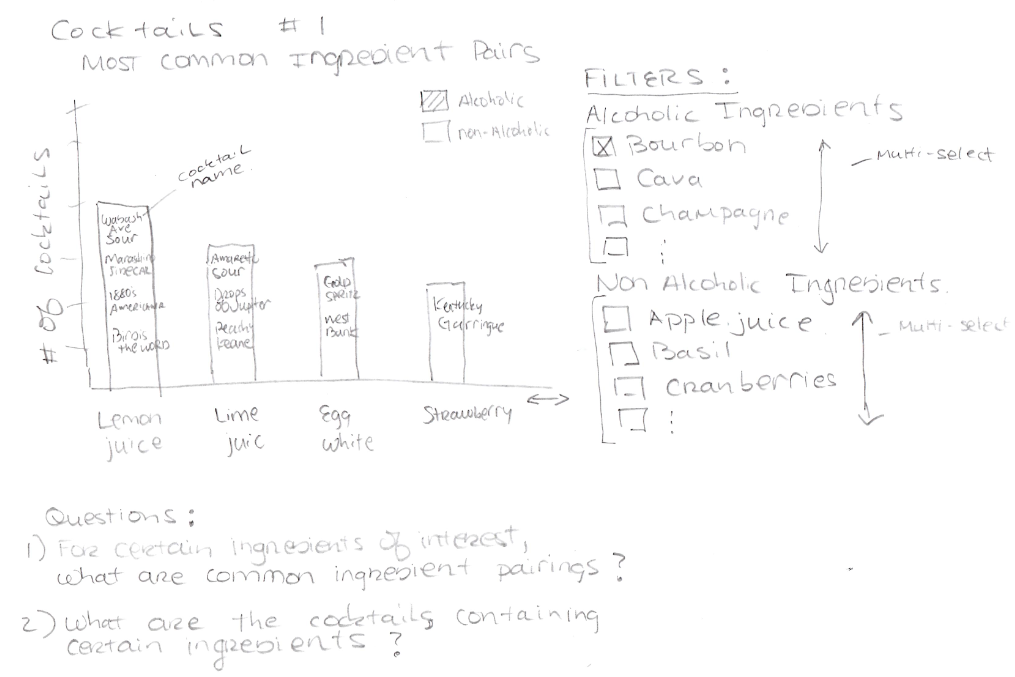 Cocktails # 1
Most Common Ingredient Pairs
Alcoholic
non-Alcoholic
cocktail
name.
# of Cocktails
Wabash
Ave
Sour
1880's
Americana
the word
Amarett
Sour
Drops
of Jupiter
Peach
Keane
Gold
Spritz
West
Bank
Kentucky
Lemon
juice
Lime
juic
Egg
white
Strawberry
FILTERS:
Alcoholic Ingredients
Bourbon
Cava
Champagne
Multi-select
Non Alcoholic Ingredients.
Apple juice
Basil
Cranberries
Multi-select
Questions:
1) For certain ingredients of interest,
what are common ingredient pairings?
2) What are the cocktails containing
certain ingredients?